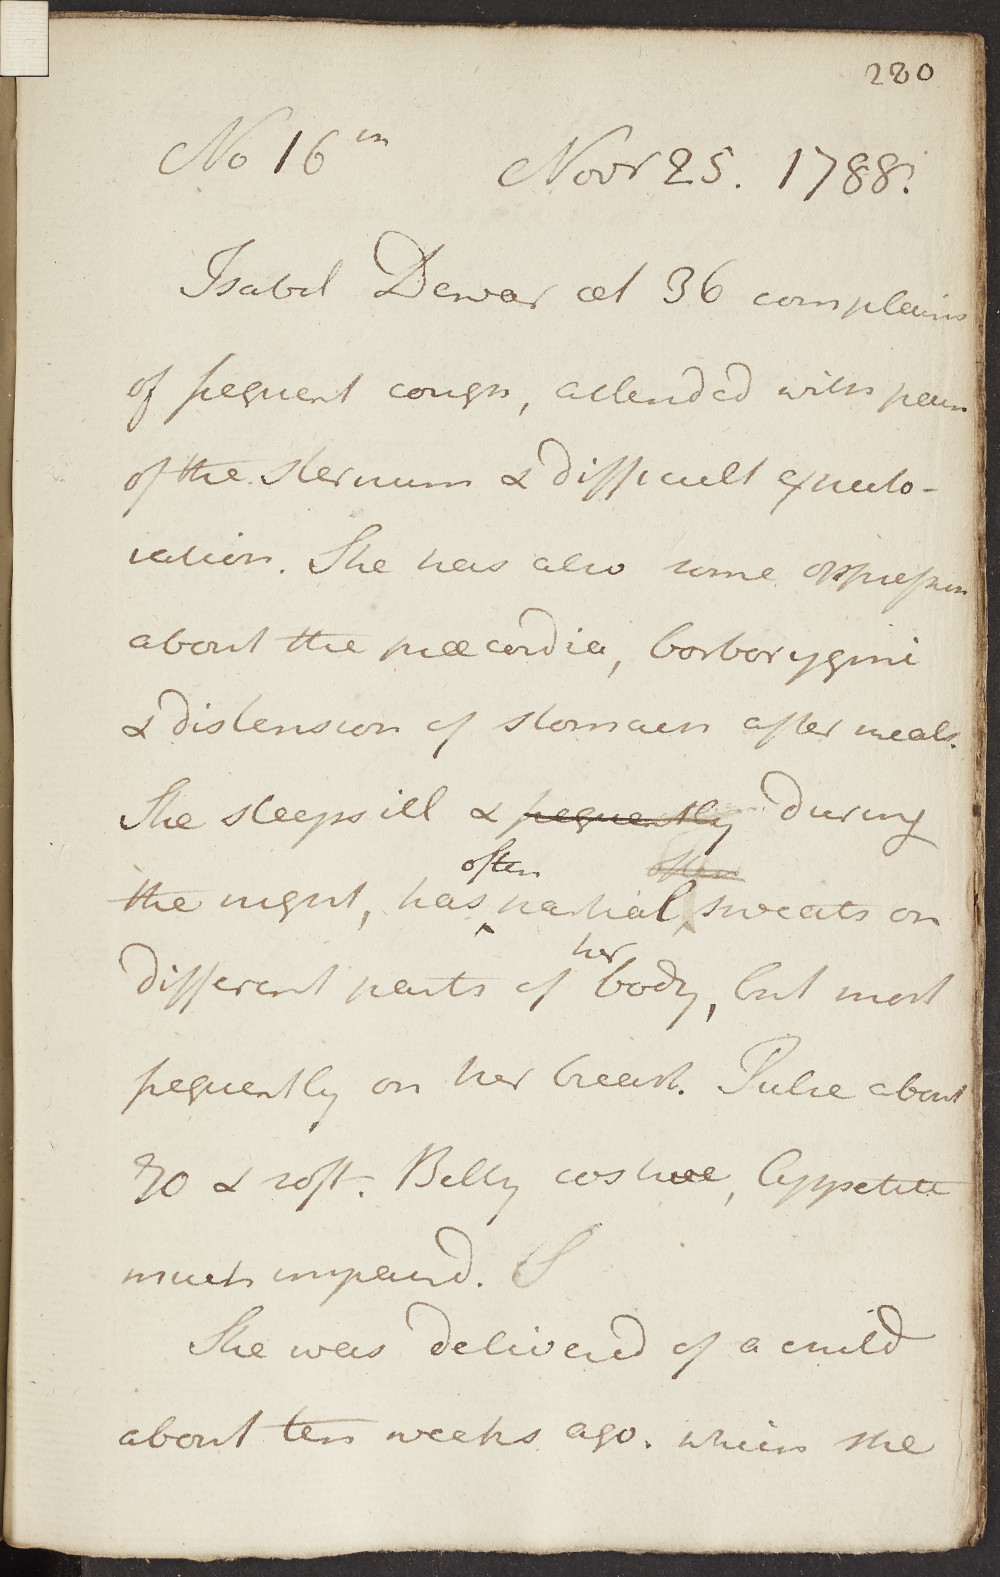 280
No 16th Novr 25. 1788.
Isabel Dewar æt 36 complains
of frequent cough, attended with pain
of the sternum & difficult expecto-
ration. She has also some oppression
about the præcordia, borborygmi
& distension of stomach after meals.
She sleeps ill & frequently during
often often
the night, has partial sweats on
her
different parts of body, but most
frequently on her breast. Pulse about
70 & soft. Belly costive, Appetite
much impaired. S
She was delivered of a child
about ten weeks ago. which she